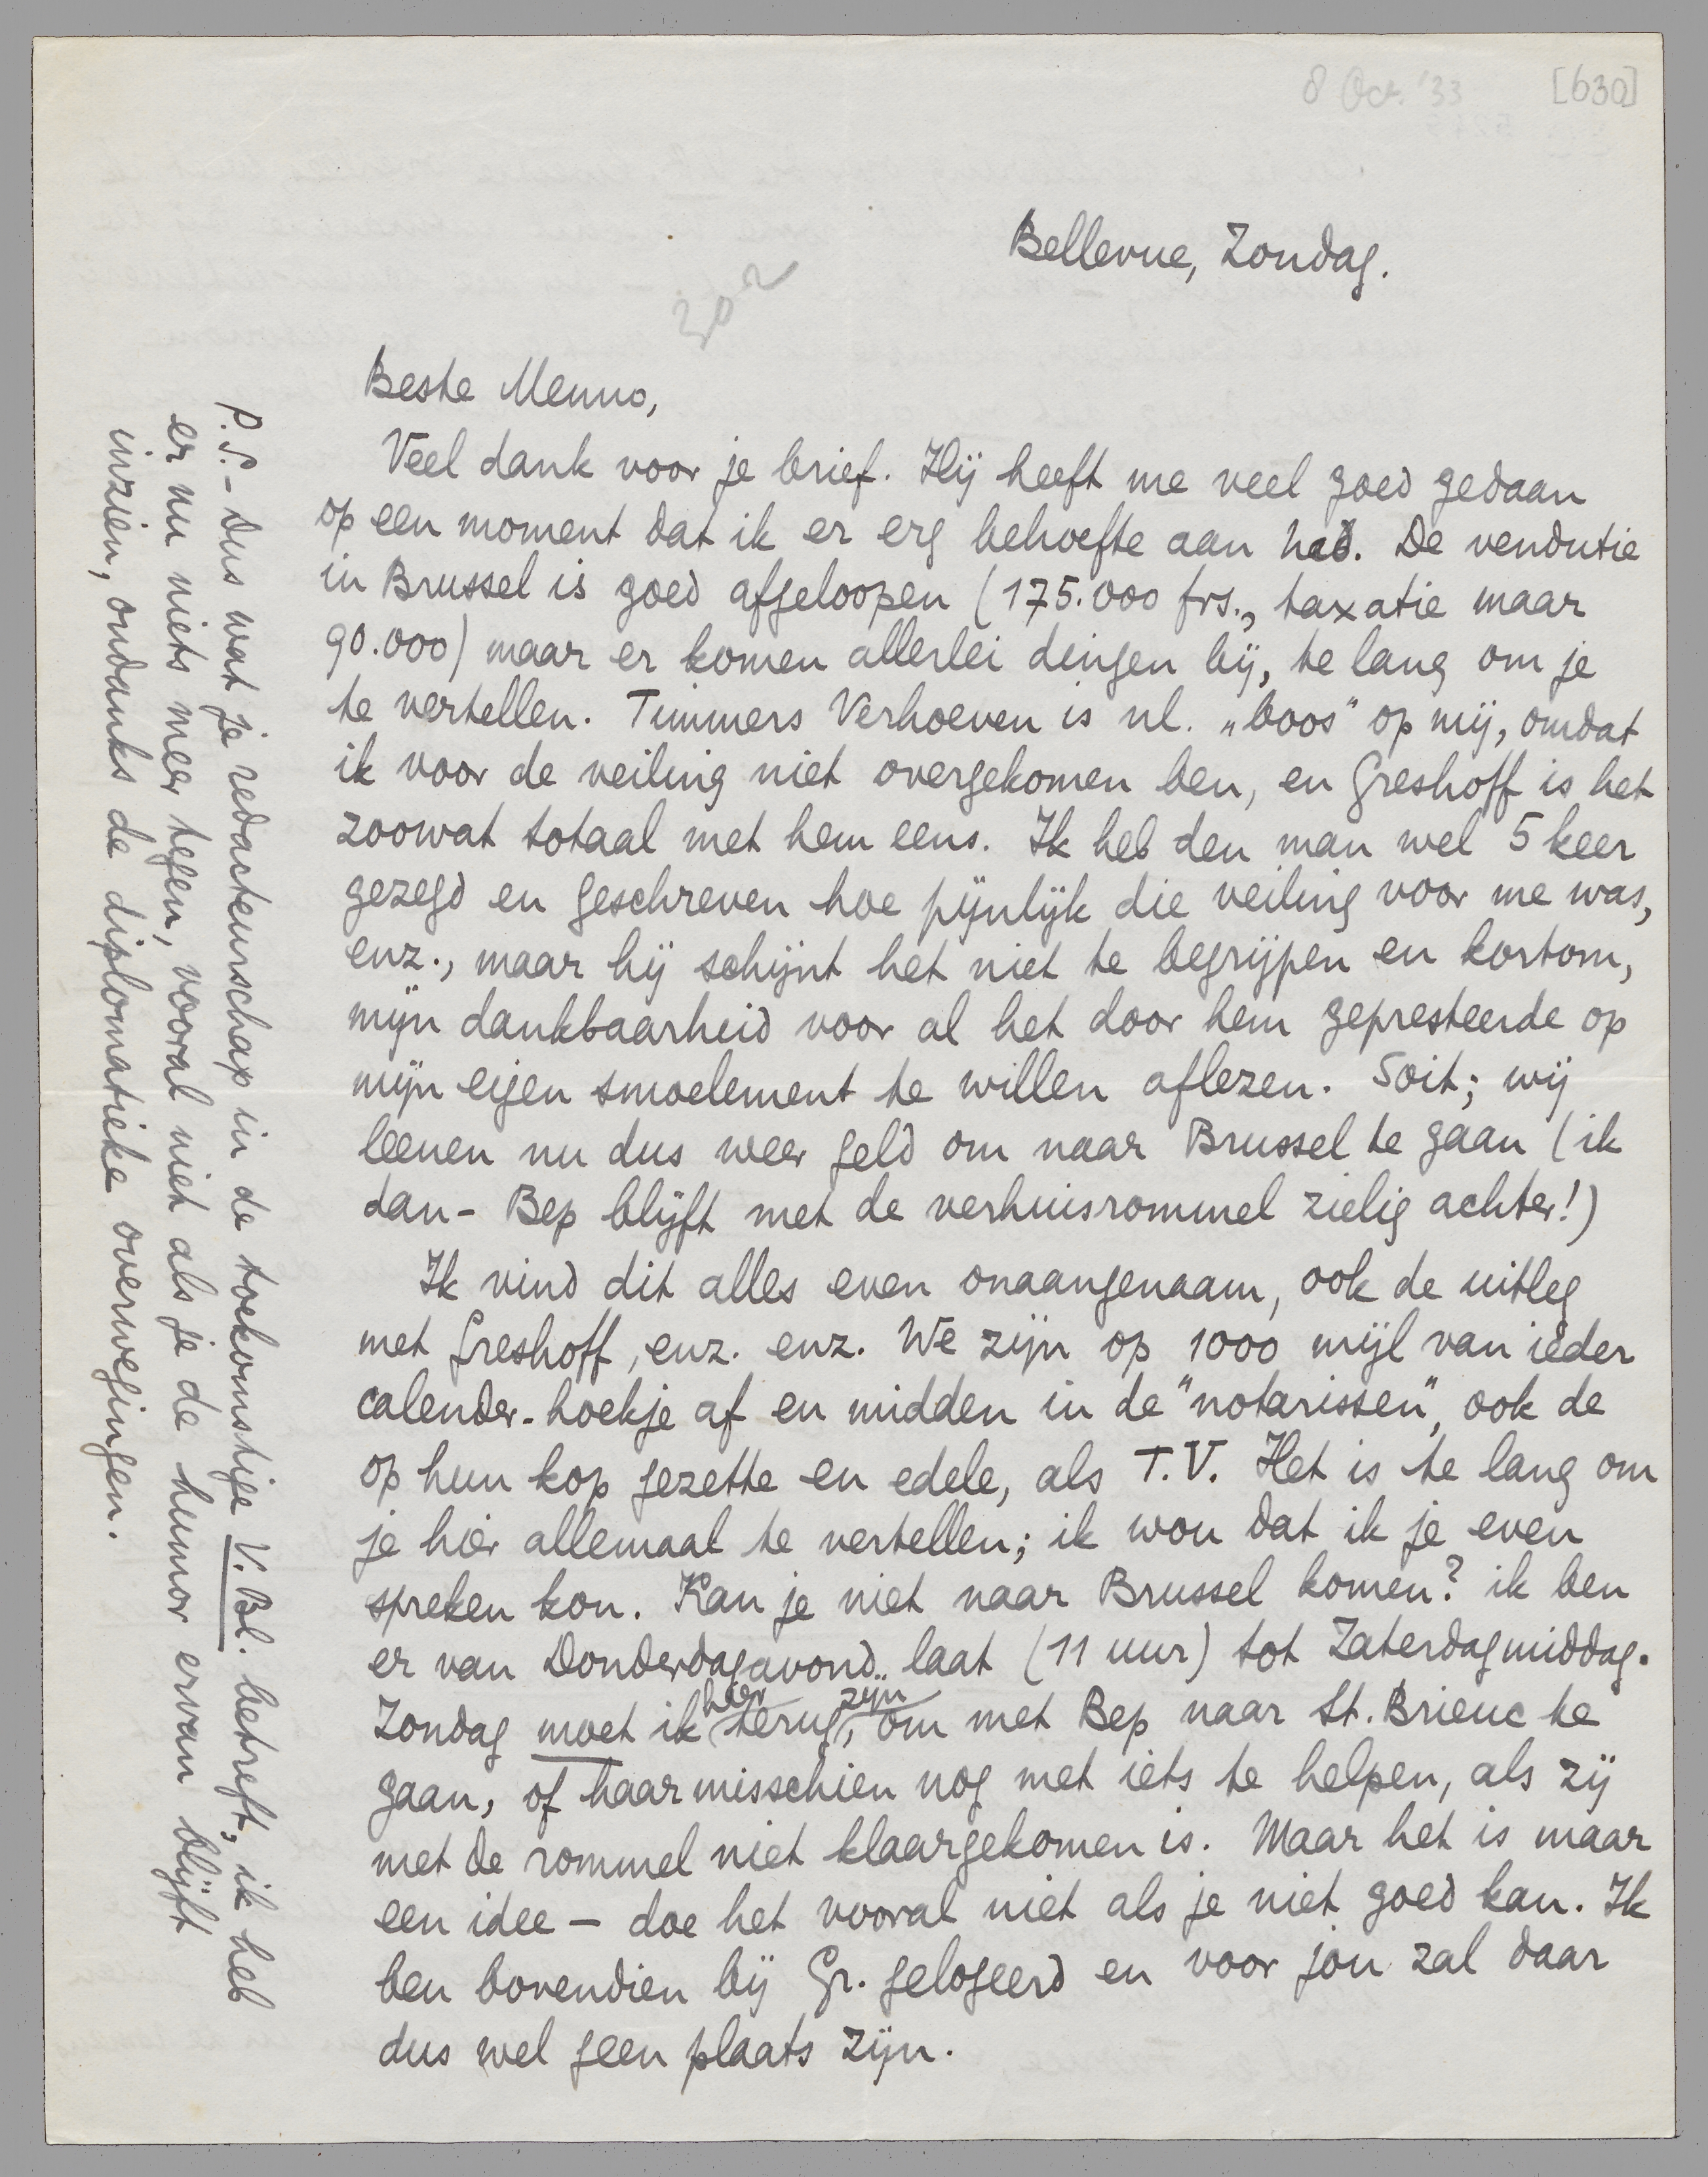 8 Oct. '33
[630]
302
Bellevue, Zondag.
Beste Menno,
Veel dank voor je brief. Hij heeft me veel goed gedaan
op een moment dat ik er erg behoefte aan had. De vendutie
in Brussel is goed afgeloopen (175.000 frs., taxatie maar
90.000) maar er komen allerlei dingen bij, te lang om je
te vertellen. Timmers Verhoeven is nl. „boos” op mij, omdat
ik voor de veiling niet overgekomen ben, en Greshoff is het
zoowat totaal met hem eens. Ik heb den man wel 5 keer
gezegd en geschreven hoe pijnlijk die veiling voor me was,
enz., maar hij schijnt het niet te begrijpen en kortom,
mijn dankbaarheid voor al het door hem gepresteerde op
mijn eigen smoelement te willen aflezen. Soit; wij
leenen nu dus weer geld om naar Brussel te gaan (ik
dan - Bep blijft met de verhuisrommel zielig achter!)
Ik vind dit alles even onaangenaam, ook de uitleg
met Greshoff, enz. enz. We zijn op 1000 mijl van ieder
calender-hoekje af en midden in de "notarissen", ook de
op hun kop gezette en edele, als T.V. Het is te lang om
je hier allemaal te vertellen; ik wou dat ik je even
spreken kon. Kan je niet naar Brussel komen? ik ben
er van Donderdagavond laat (11 uur) tot Zaterdagmiddag.
Zondag moet ik hier terug zijn, om met Bep naar St. Brieuc te
gaan, of haar misschien nog met iets te helpen, als zij
met de rommel niet klaargekomen is. Maar het is maar
een idee — doe het vooral niet als je niet goed kan. Ik
ben bovendien bij Gr. gelogeerd en voor jou zal daar
dus wel geen plaats zijn.
P.S. - Dus wat je redacteurschap in de toekomstige V. Bl. betreft, ik heb
er nu niets meer tegen, vooral niet als je de humor ervan blijft
inzien, ondanks de diplomatieke overwegingen.